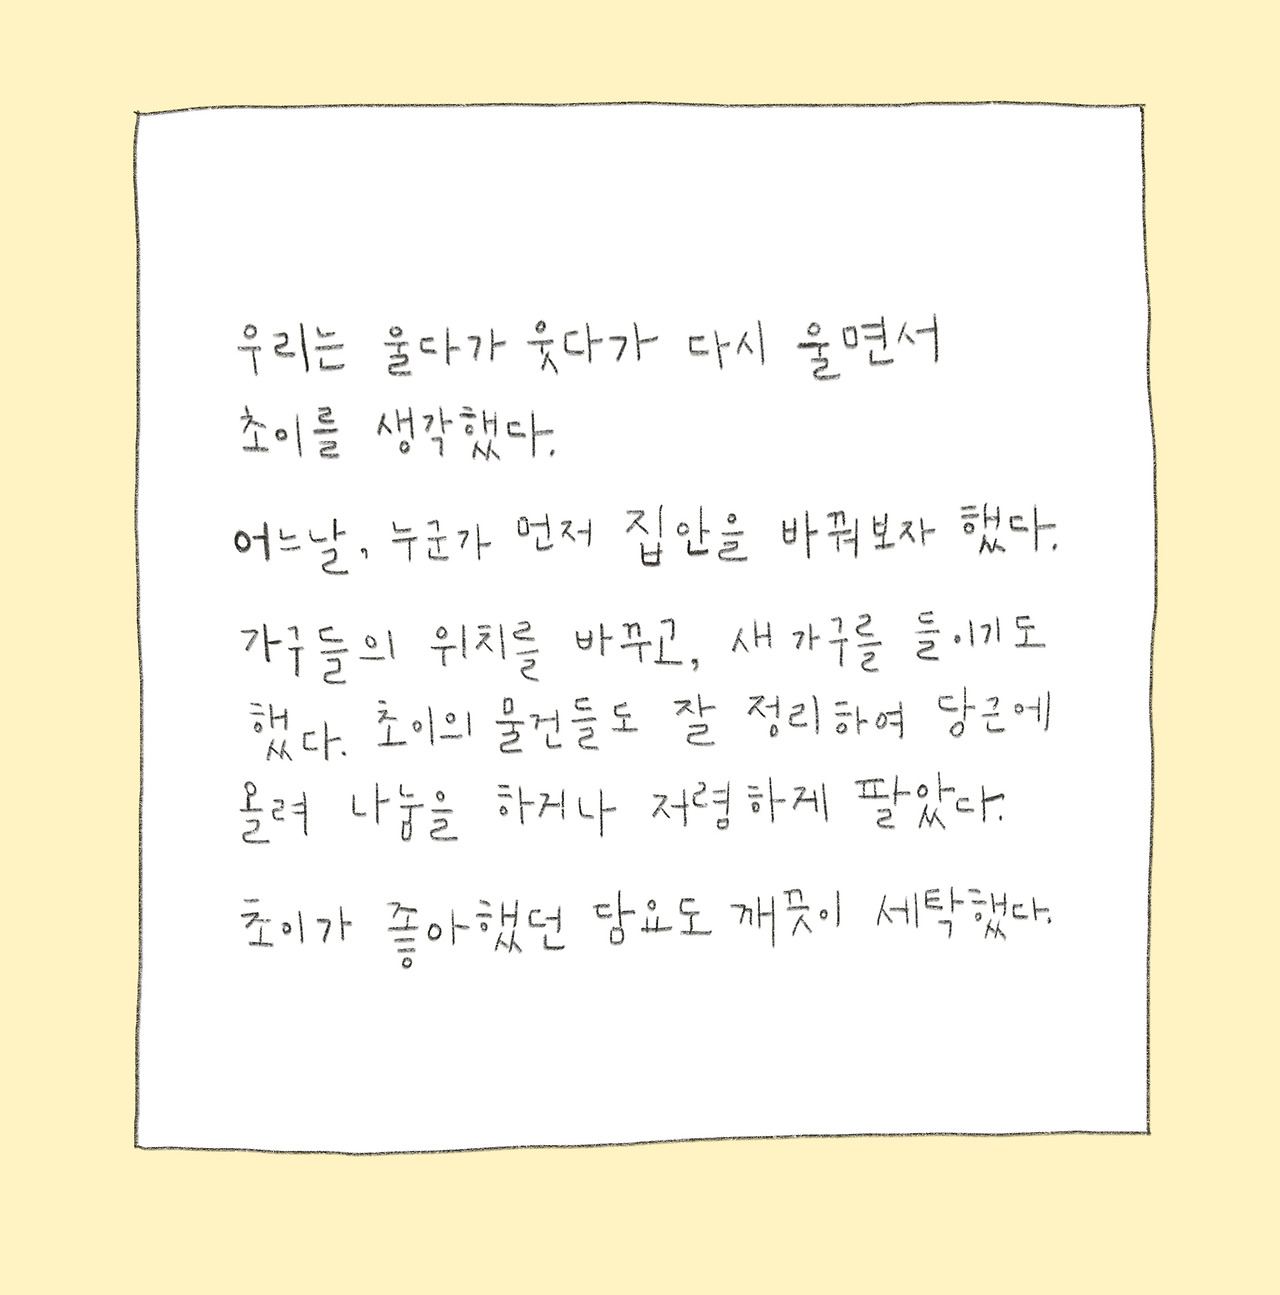 우리는 울다가 웃다가 다시 울면서
초이를 생각했다.
어느날, 누군가 먼저 집안을 바꿔보자 했다.
가구들의 위치를 바꾸고, 새 가구를 들이기도
했다. 초이의 물건들도 잘 정리하여 당근에
올려 나눔을 하거나 저렴하게 팔았다.
초이가 좋아했던 담요도 깨끗이 세탁했다.